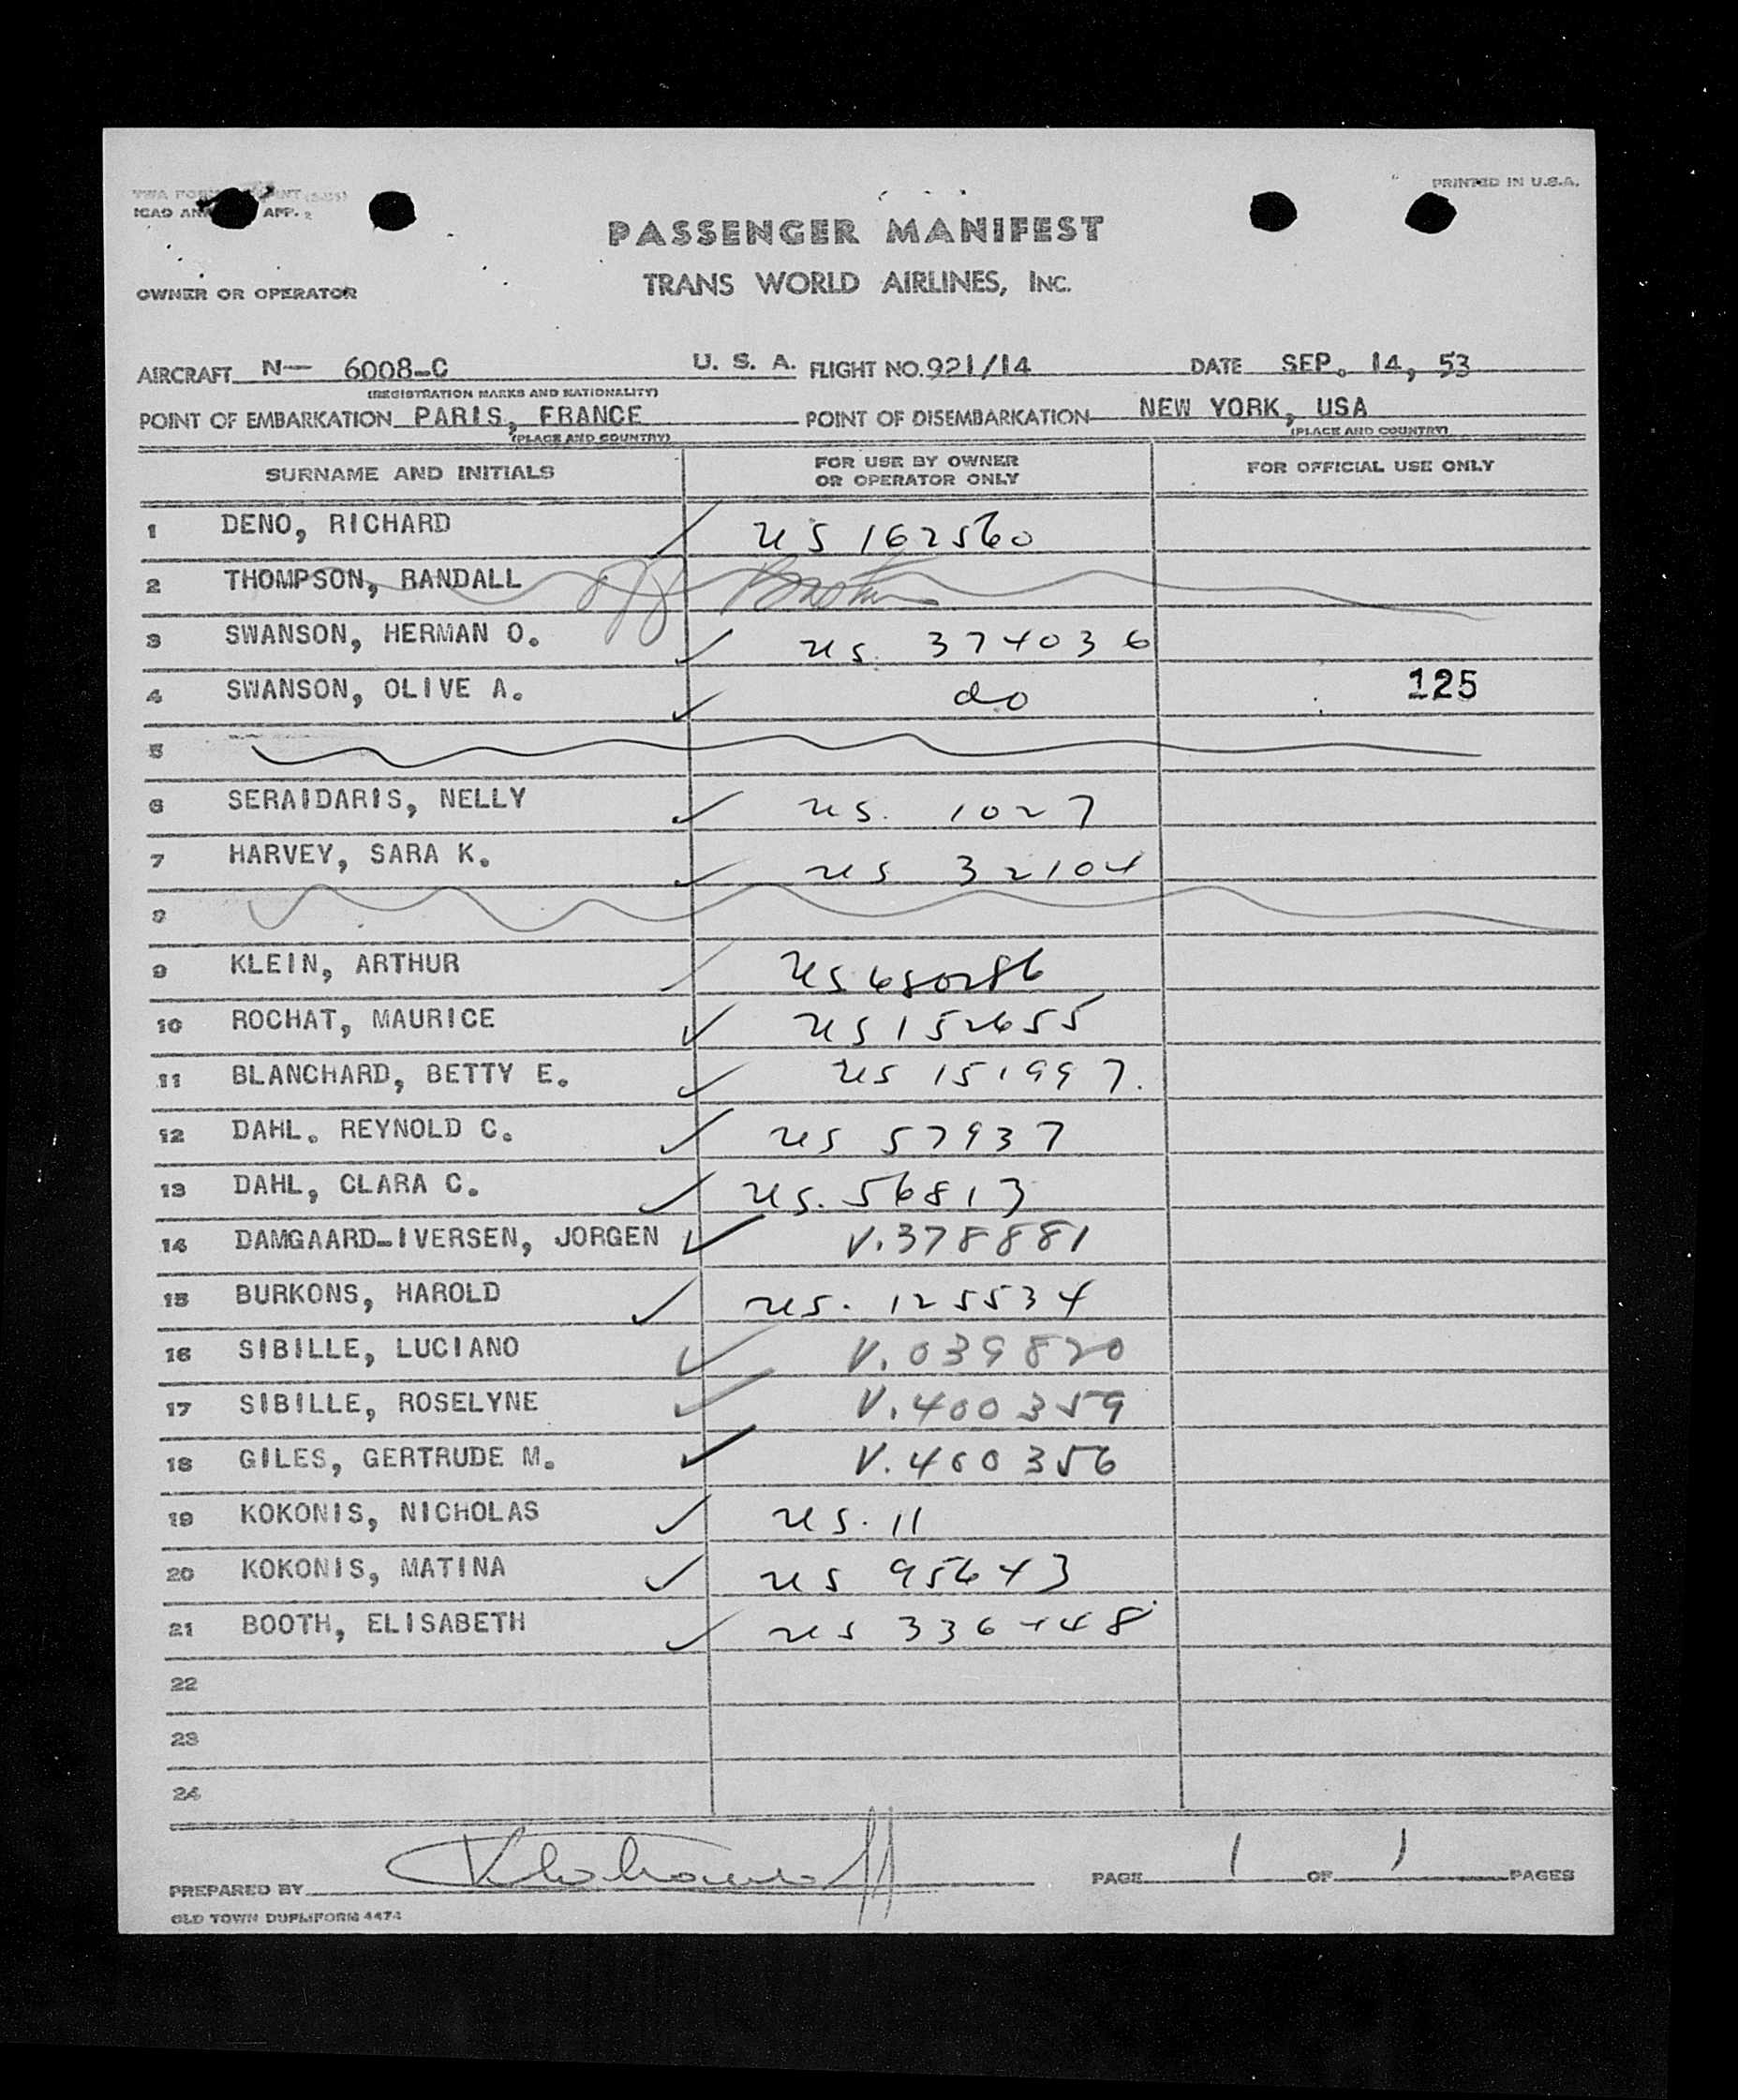 PRINTED IN U.S.A.
ICAO APP. 2
PASSENGER MANIFEST
TRANS WORLD AIRLINES, INC.
OWNER OR OPERATOR
AIRCRAFT N— 6008-C U. S. A. FLIGHT NO. 921/14 DATE SEP. 14, 53
(REGISTRATION MARKS AND NATIONALITY)
POINT OF EMBARKATION PARIS, FRANCE POINT OF DISEMBARKATION NEW YORK, USA
(PLACE AND COUNTRY) (PLACE AND COUNTRY)
SURNAME AND INITIALS FOR USE BY OWNER OR OPERATOR ONLY FOR OFFICIAL USE ONLY
1 DENO, RICHARD US 162560
2 THOMPSON, RANDALL
3 SWANSON, HERMAN O. US. 374036
4 SWANSON, OLIVE A. do 125
5
6 SERAIDARIS, NELLY US. 1027
7 HARVEY, SARA K. US 32104
8
9 KLEIN, ARTHUR US 680286
10 ROCHAT, MAURICE US 152655
11 BLANCHARD, BETTY E. US 151997.
12 DAHL. REYNOLD C. US 57937
13 DAHL, CLARA C. US. 56813
14 DAMGAARD-IVERSEN, JORGEN V.378881
15 BURKONS, HAROLD US. 125534
16 SIBILLE, LUCIANO V.039820
17 SIBILLE, ROSELYNE V.400359
18 GILES, GERTRUDE M. V.400356
19 KOKONIS, NICHOLAS US. 11
20 KOKONIS, MATINA US 95643
21 BOOTH, ELISABETH US 336448
22
23
24
PREPARED BY PAGE 1 OF 1 PAGES
OLD TOWN DUPLIFORM 4474